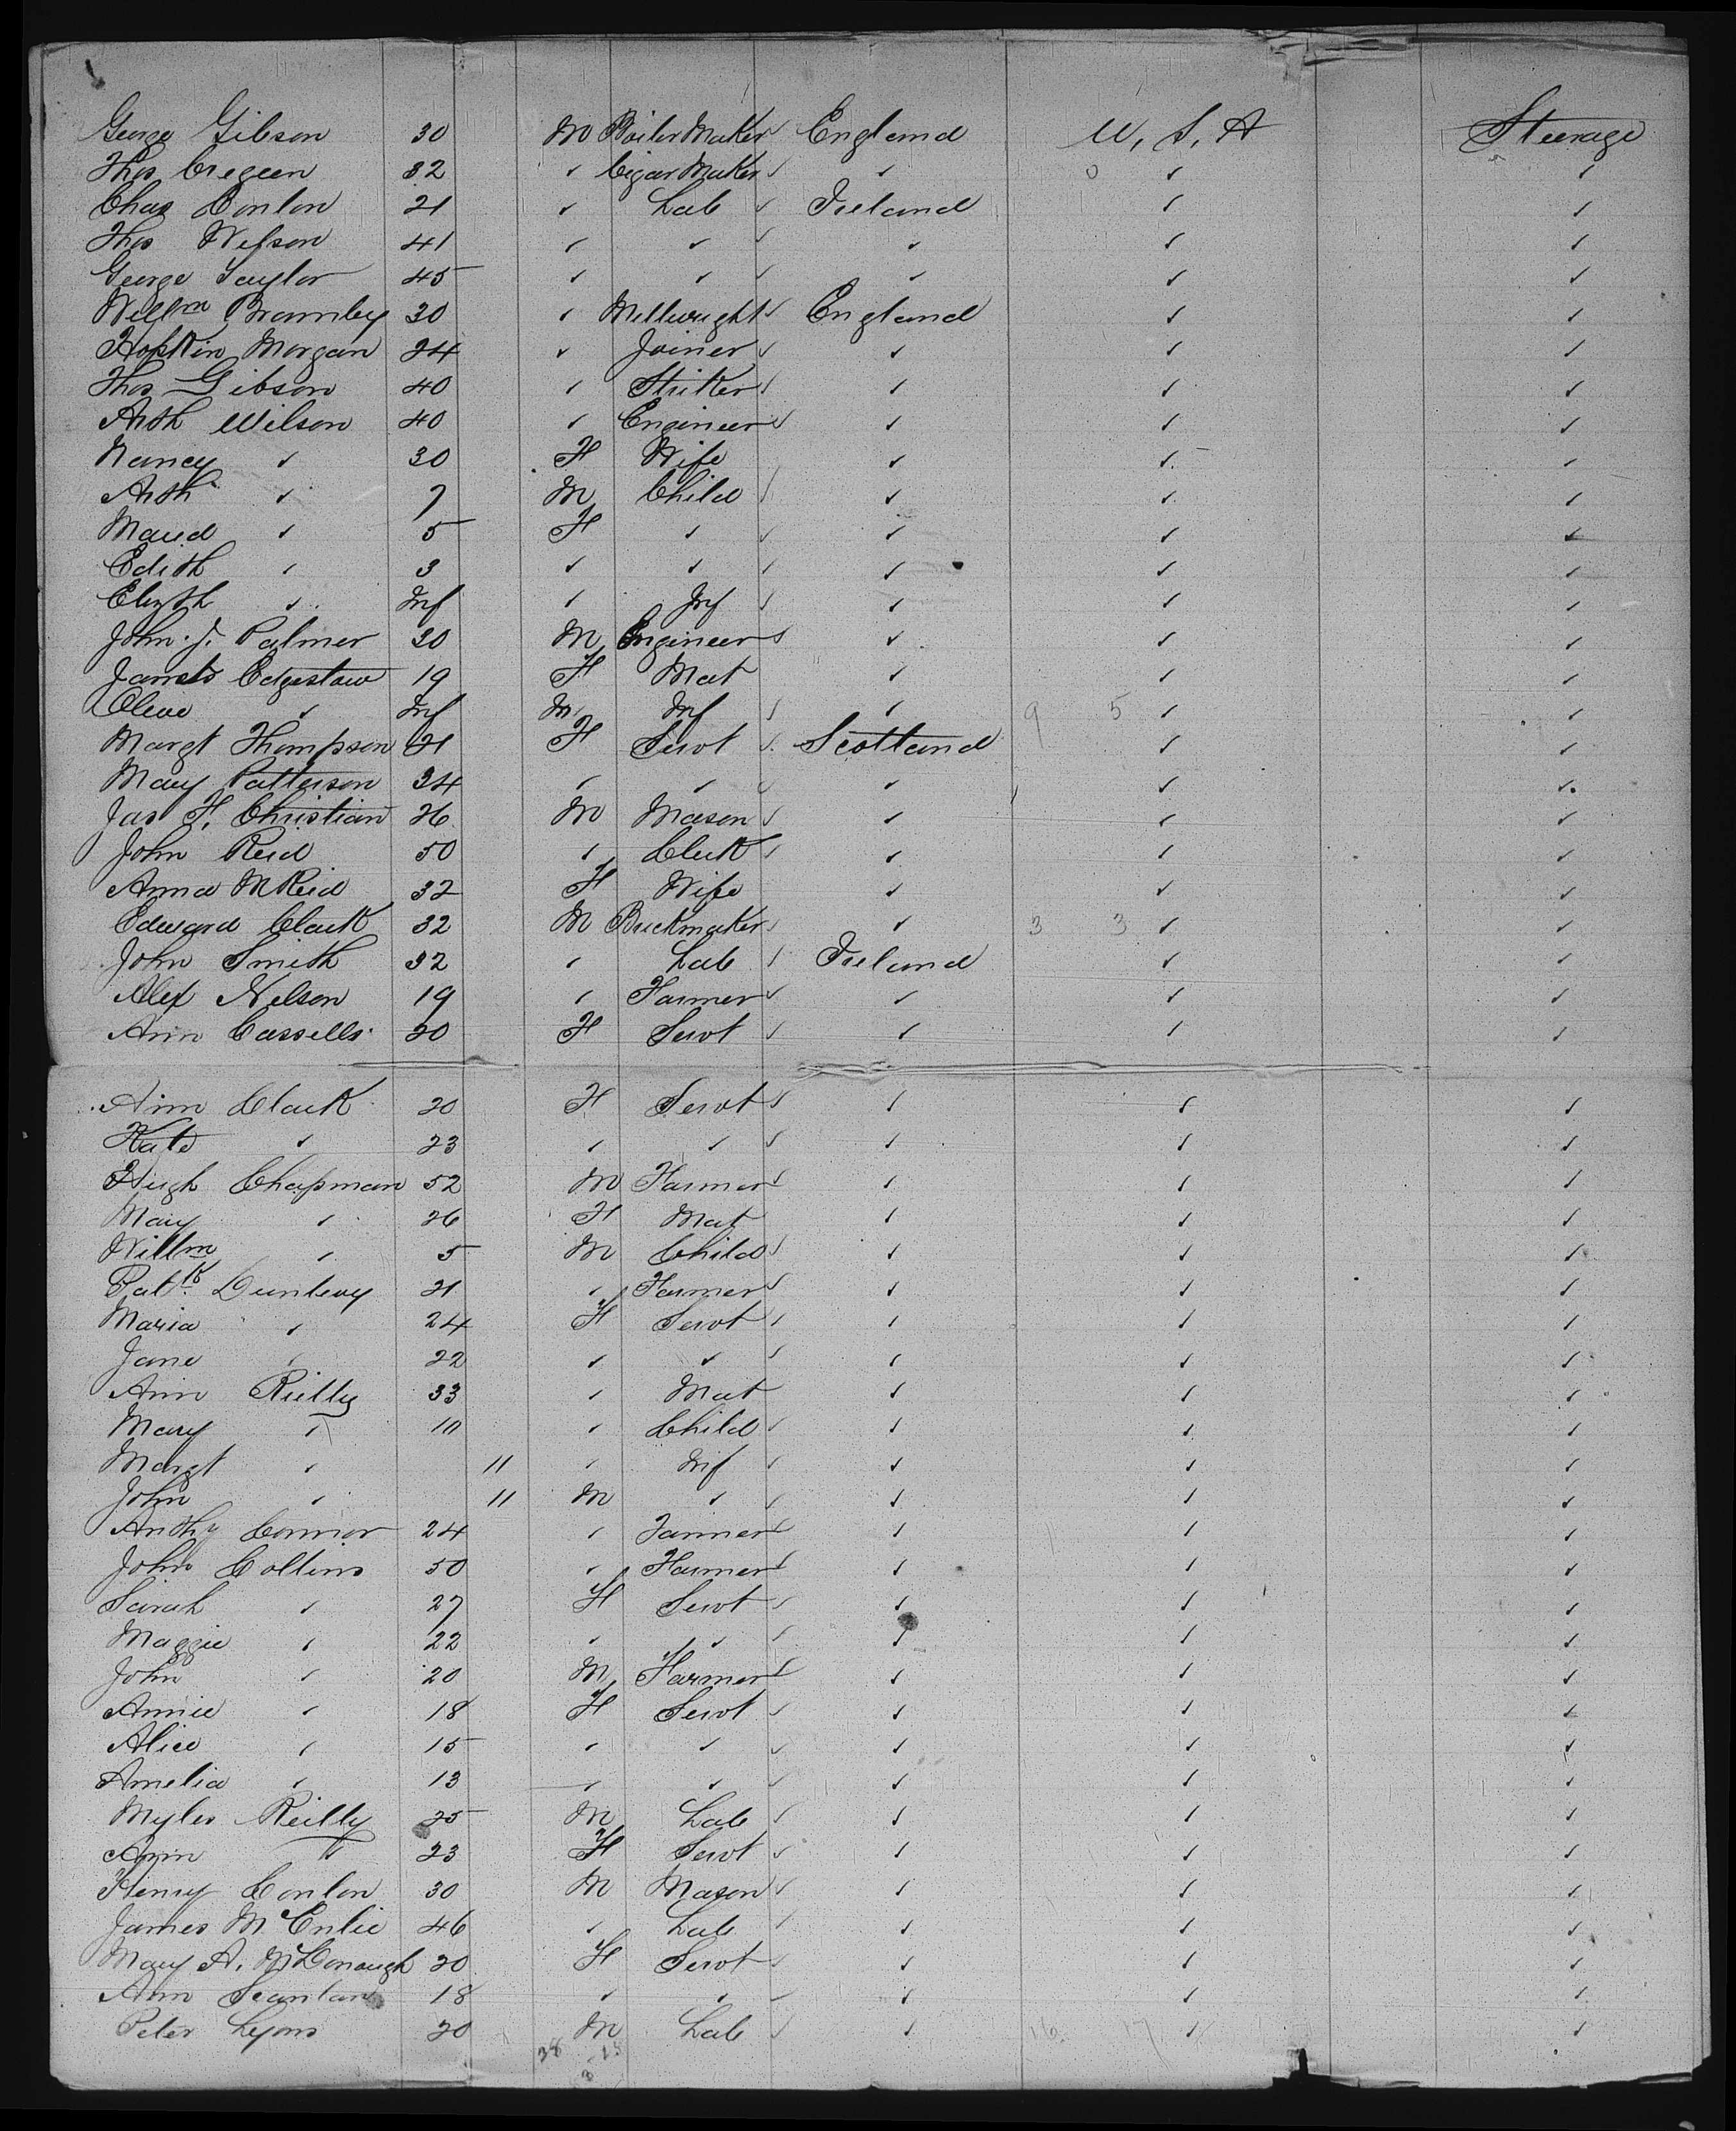 George Gibson 30 M Boiler Maker England U. S. A Steerage
Thos Cregeen 32 " Cigar Maker " " "
Chas Conlon 21 " Lab Ireland " "
Thos Wesson 41 " " " " "
George Taylor 45 " " " " "
Willm Bramley 30 " Millwright England " "
Hopkin Morgan 24 " Joiner " " "
Thos Gibson 40 " Striker " " "
Arth Wilson 40 " Engineer " " "
Nancy " 30 F Wife " " "
Arth " 7 M Child " " "
Maud " 5 F " " " "
Edith " 3 " " " " "
Elizth " Inf " Inf " " "
John J. Palmer 30 M Engineer " " "
Janet 19 F Mat " " "
Cleve " Inf M Inf " 9 5 " "
Margt Thompson 21 F Servt Scotland " "
Mary Patterson 34 " " " " "
Jas F. Christian 26 M Mason " " "
John Reid 50 " Clerk " " "
Anna M Reid 32 F Wife " " "
Edward Clark 32 M Brickmaker " 3 3 " "
John Smith 32 " Lab Ireland " "
Alex Nelson 19 " Farmer " " "
Ann Cassells 20 F Servt " " "
Ann Clark 20 F Servt " " "
Kate " 23 " " " " "
Hugh Chapman 52 M Farmer " " "
Mary " 26 F Mat " " "
Willm " 5 M Child " " "
Patk Dunlevy 21 " Farmer " " "
Maria " 24 F Servt " " "
Jane " 22 " " " " "
Ann Reilly 33 " Mat " " "
Mary " 10 " Child " " "
Margt " 11 " Inf " " "
John " 11 M " " " "
Anthy Connor 24 " Farmer " " "
John Collins 50 " Farmer " " "
Sarah " 27 F Servt " " "
Maggie " 22 " " " " "
John " 20 M Farmer " " "
Annie " 18 F Servt " " "
Alice " 15 " " " " "
Amelia " 13 " " " " "
Myles Reilly 25 M Lab " " "
Ann " 23 F Servt " " "
Henry Conlon 30 M Mason " " "
James McEnlie 46 " Lab " " "
Mary A. McDonough 20 F Servt " " "
Ann Scanlan 18 " " " " "
Peter Lyons 20 M Lab " 16 17 " "
38 15